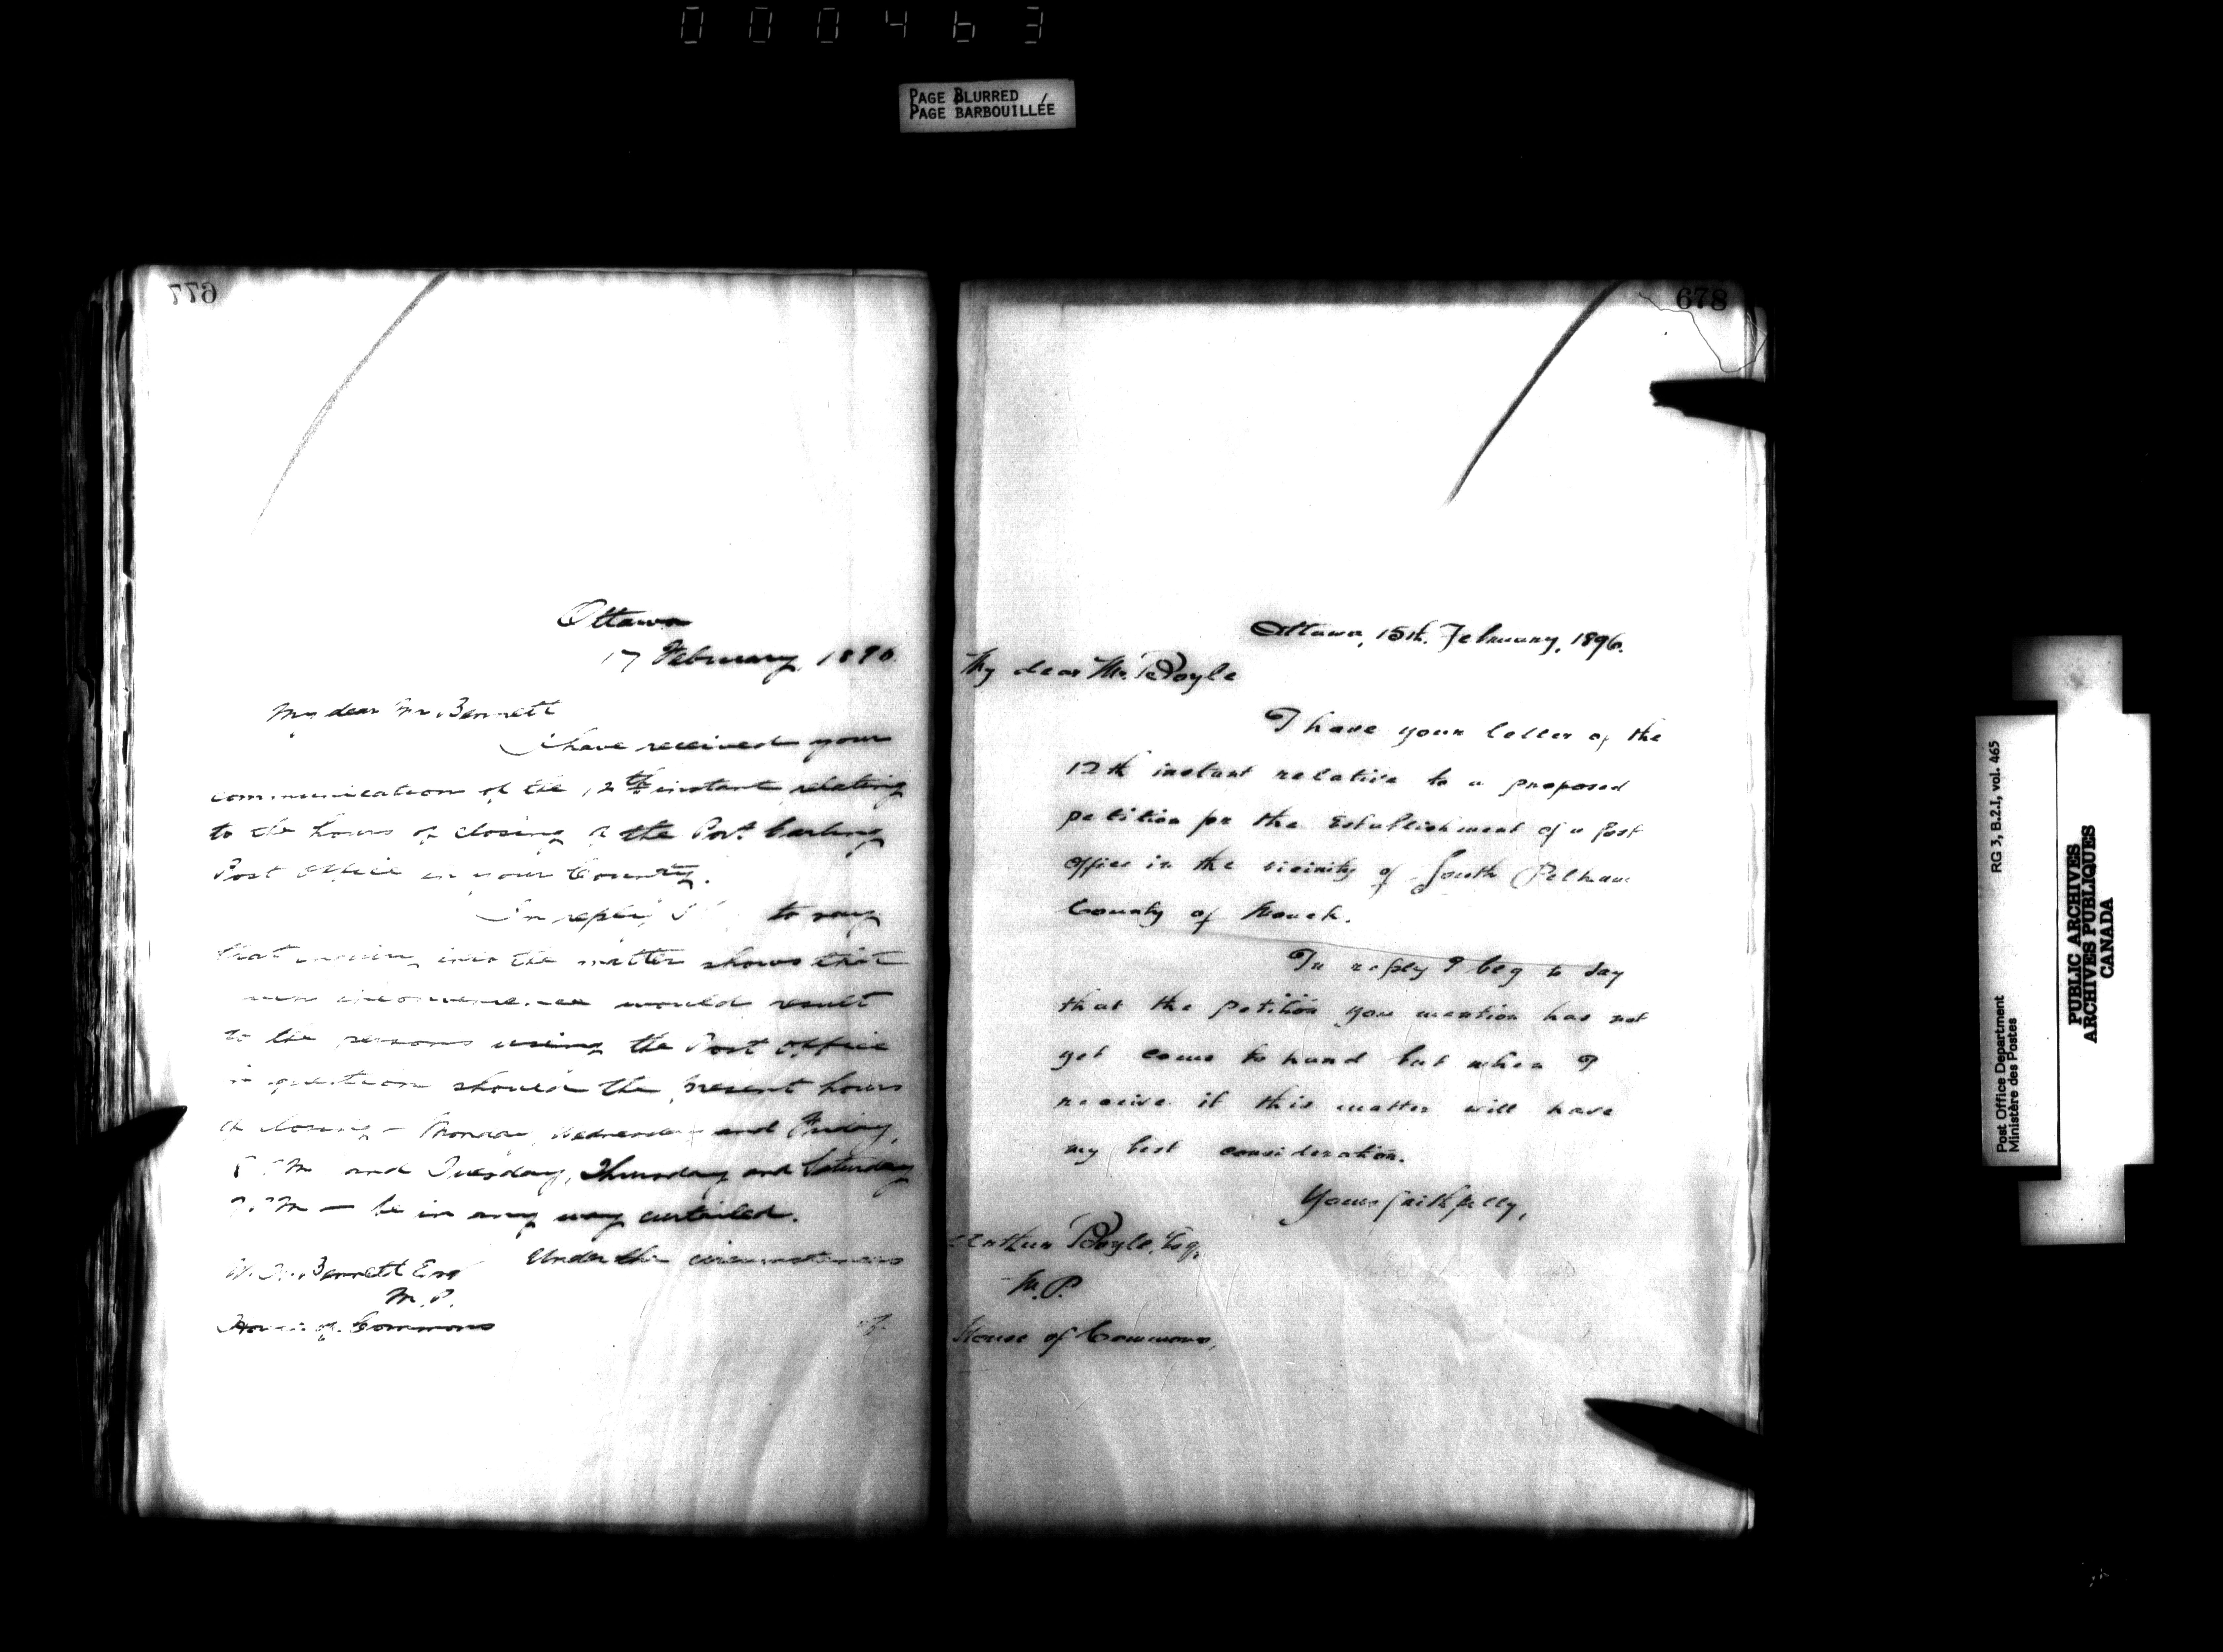 000463
PAGE BLURRED
PAGE BARBOUILLÉE
677
Ottawa
17 February, 1896.
My dear Mr. Bennett
I have received your
communication of the 12th instant relating
to the hours of closing of the Port Carling
Post Office in your County.
In reply I to say
that inquiry into the matter shows that
inconvenience would result
to the persons using the Post Office
in question should the present hours
of closing - Monday, Wednesday and Friday,
P.M. and Tuesday, Thursday and Saturday
P.M. - be in any way curtailed.
Under the circumstances
W. H. Bennett Esq
M.P.
House of Commons
678
Ottawa, 15th. February, 1896.
My dear Mr. Boyle
I have your letter of the
12th instant relative to a proposed
petition for the establishment of a Post
Office in the vicinity of South Pelham
County of Monck.
In reply I beg to say
that the petition you mention has not
yet come to hand but when I
receive it this matter will have
my best consideration.
Yours faithfully,
Arthur Boyle, Esq.
M.P.
House of Commons,
Post Office Department RG 3, B.2.I, vol. 465
Ministère des Postes
PUBLIC ARCHIVES
ARCHIVES PUBLIQUES
CANADA